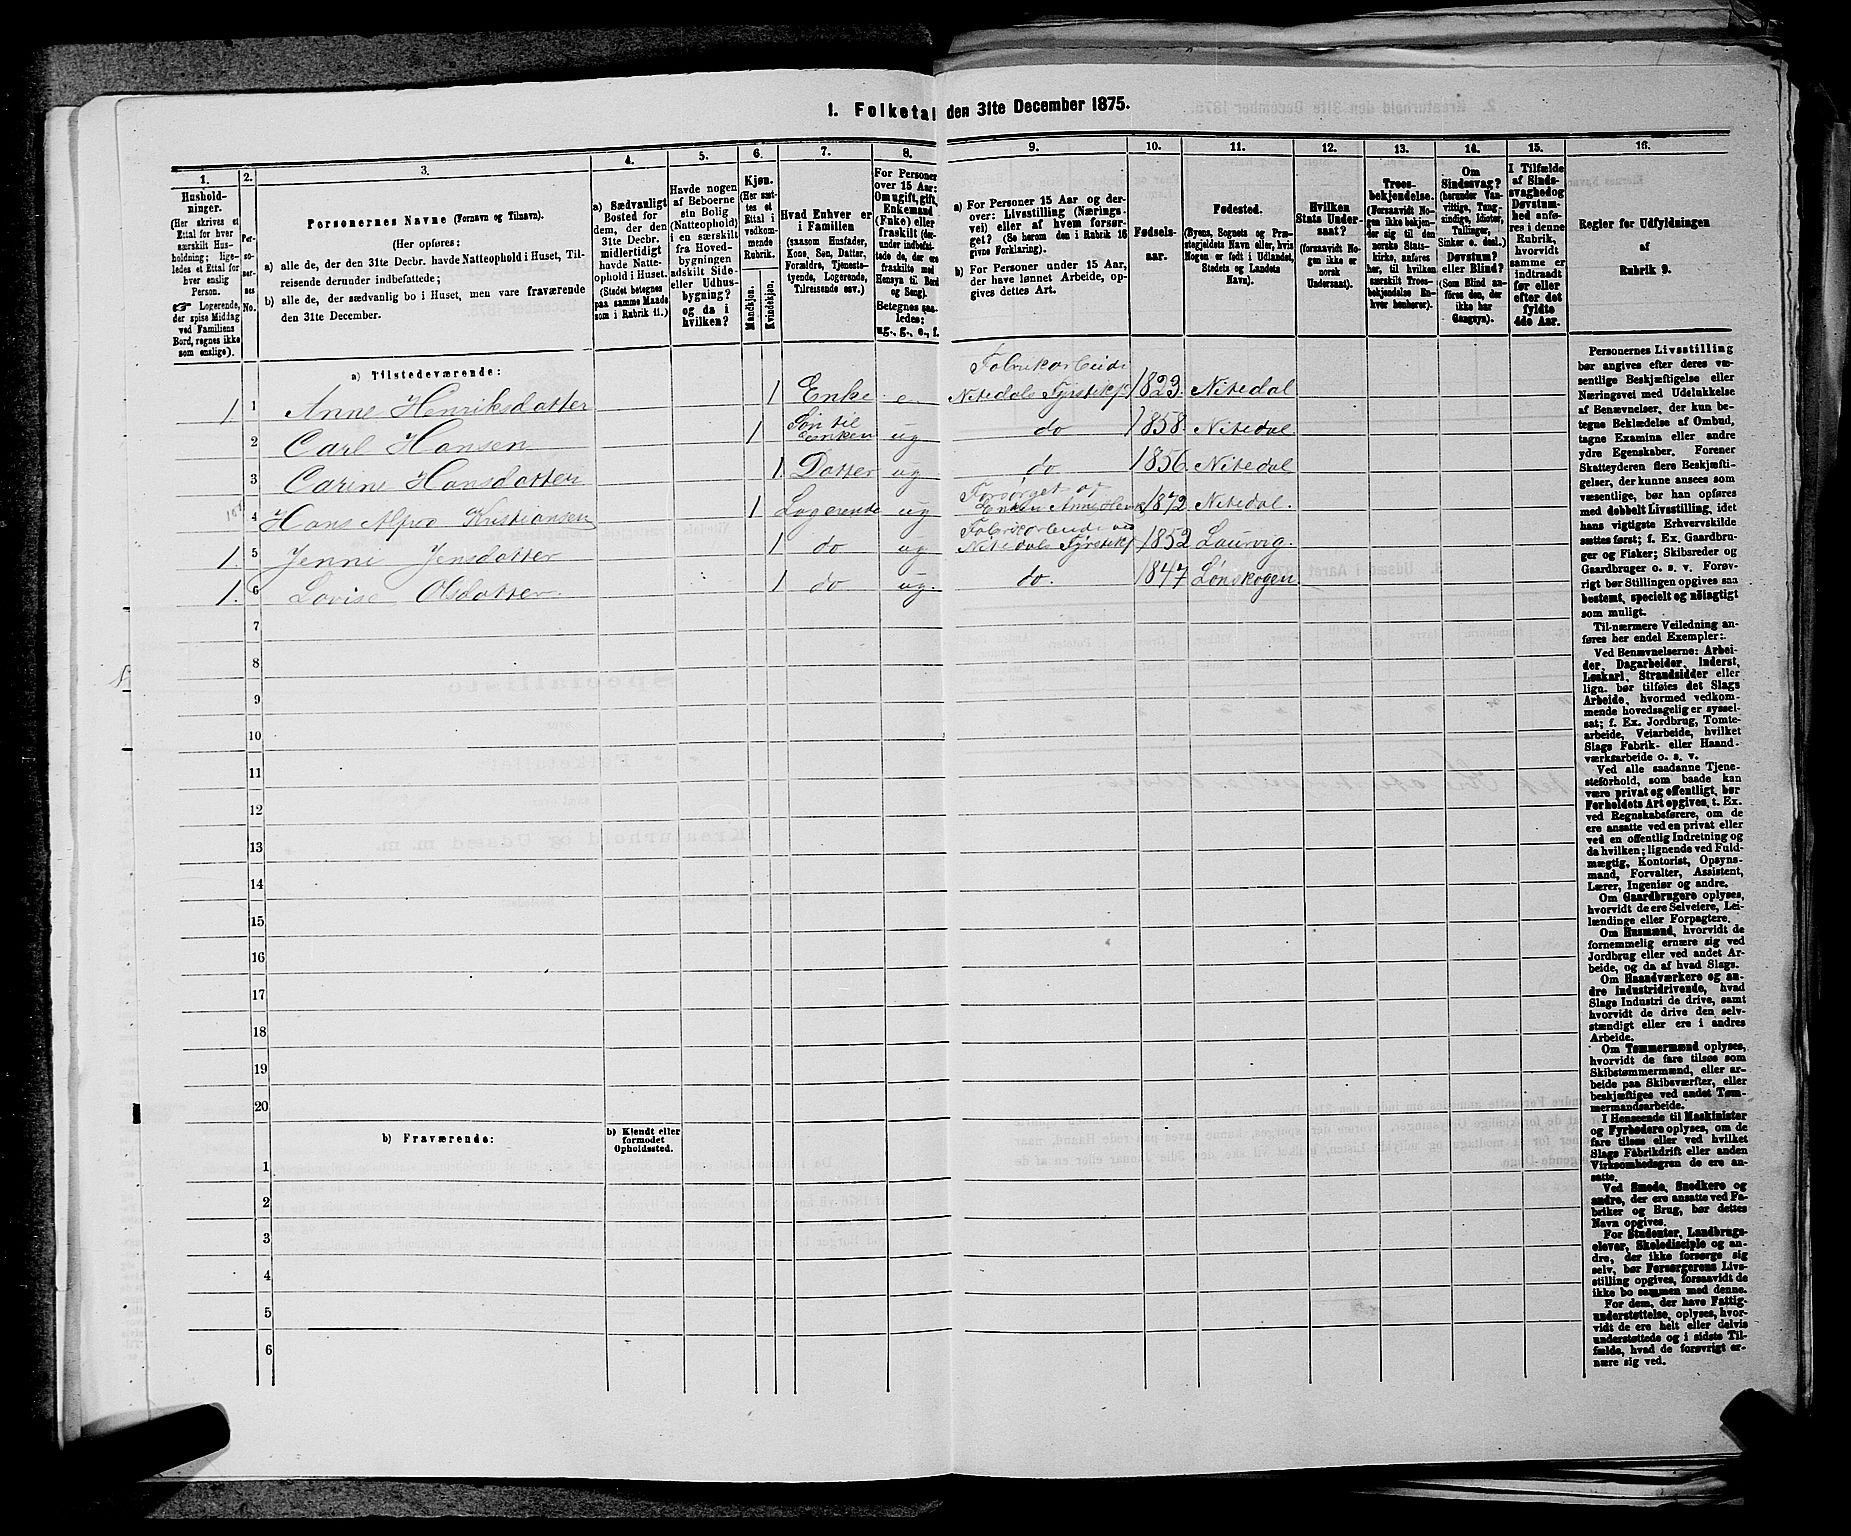 1. Folketal den 31te December 1875.
1.
Hushold-
ninger.
(Her skrives et
Ettal for hver
særskilt Hus-
holdning; lige-
ledes et Ettal for
hver enslig
Person.
Logerende,
der spise Middag
ved Familiens
Bord, regnes ikke
som enslige).
2.
Per-
so-
ner-
nes
No.
3.
Personernes Navne (Fornavn og Tilnavn).
(Her opføres:
a) alle de, der den 31te Decbr. havde Natteophold i Huset, Til-
reisende derunder indbefattede;
b) alle de, der sædvanlig bo i Huset, men vare fraværende
den 31te December.
4.
a) Sædvanligt
Bosted for
dem, der den
31te Decbr.
midlertidigt
havde Natte-
ophold i Huset.
(Stedet betegnes
paa samme Maade
som i Rubrik 11.)
5.
Havde nogen
af Beboerne
sin Bolig
(Natteophold)
i en særskilt
fra Hoved-
bygningen
adskilt Side-
eller Udhus-
bygning?
og da i
hvilken?
6.
Kjøn.
(Her sæt-
tes et
Ettal i
vedkom-
mende
Rubrik.
Mandkjøn.
Kvindekjøn.
7.
Hvad Enhver er
i Familien
(saasom Husfader,
Kone, Søn, Datter,
Forældre, Tjeneste-
tyende, Logerende,
Tilreisende osv.)
8.
For Personer
over 15 Aar:
Om ugift, gift,
Enkemand
(Enke) eller
fraskilt (der-
under indbefat-
tede de, der ere
fraskilte med
Hensyn til Bord
og Seng).
Betegnes saa-
ledes:
ug., g., e., f.
9.
a) For Personer 15 Aar og der-
over: Livsstilling (Nærings-
vei) eller af hvem forsør-
get? (Se herom den i Rubrik 16
givne Forklaring).
b) For Personer under 15 Aar,
der have lønnet Arbeide, op-
gives dettes Art.
10.
Fødsels-
aar.
11.
Fødested.
(Byens, Sognets og Præ-
stegjeldets Navn eller, hvis
Nogen er født i Udlandet,
Stedets og Landets
Navn).
12.
Hvilken
Stats Under-
saat?
(forsaavidt No-
gen ikke er
norsk
Undersaat).
13.
Troes-
bekjendelse.
(Forsaavidt No-
gen ikke bekjen-
der sig til den
norske Stats-
kirke, anføres
her, til hvilken
særskilt Troes-
bekjendelse En-
hver henhører).
14.
Om
Sindssvag?
(herunder Van-
vittige, Tung-
sindige, Idioter,
Tullinger,
Sinker o. desl.).
Døvstum?
eller Blind?
(Som Blind an-
føres den, der
ikke har
Gangsyn).
15.
I Tilfælde
af Sinds-
svaghed og
Døvstum-
hed anfø-
res i denne
Rubrik,
hvorvidt
samme er
indtraadt
før eller
efter det
fyldte
4de Aar.
16.
Regler for Udfyldningen
af
Rubrik 9.
a) Tilstedeværende:
1 1 Anne Henriksdatter 1 Enke e Fabrikarbeide Nitedals Fyrstikf 1823. Nitedal
2 Carl Hansen 1 Søn til Enken ug do 1858. Nitedal
3 Carine Hansdatter 1 Datter ug do 1856. Nitedal
4 Hans Kristiansen 1 Logerende ug Forsørget af Enken Anne 1872. Nitedal.
1. 5 Jenni Jensdatter 1 do ug Fabrikarbeide ved Nitedals Fyrstikf 1852 Laurvig.
1. 6 Lovise Olsdatter. 1 do ug. do. 1847 Lønskogen
7
8
9
10
11
12
13
14
15
16
17
18
19
20
b) Fraværende: b) Kjendt eller
formodet
Opholdssted.
1
2
3
4
5
6
Personernes Livsstilling
bør angives efter deres væ-
sentlige Beskjæftigelse eller
Næringsvei med Udelukkelse
af Benævnelser, der kun be-
tegne Beklædelse af Ombud,
tagne Examina eller andre
ydre Egenskaber. Forener
Skatteyderen flere Beskjæfti-
gelser, der kunne ansees som
væsentlige, bør han opføres
med dobbelt Livsstilling, idet
hans vigtigste Erhvervskilde
sættes først; f. Ex. Gaardbru-
ger og Fisker; Skibsreder og
Gaardbruger o. s. v. Forøv-
rigt bør Stillingen opgives saa
bestemt, specielt og nøiagtigt
som muligt.
Til nærmere Veiledning an-
føres her endel Exempler:
Ved Benævnelserne: Arbei-
der, Dagarbeider, Inderst,
Løskarl, Strandsidder eller
lign. bør tilføies det Slags
Arbeide, hvormed vedkom-
mende hovedsagelig er syssel-
sat; f. Ex. Jordbrug, Tomte-
arbeide, Veiarbeide, hvilket
Slags Fabrik- eller Haand-
værksarbeide o. s. v.
Ved alle saadanne Tjene-
steforhold, som baade kan
være privat og offentligt, bør
Forholdets Art opgives, t. Ex.
ved Regnskabsførere, om de
ere ansatte ved en privat eller
ved en offentlig Indretning og
da hvilken; lignende ved Fuld-
mægtig, Kontorist, Opsyns-
mand, Forvalter, Assistent,
Lærer, Ingeniør og andre.
Om Gaardbrugere oplyses,
hvorvidt de ere Selveiere, Lei-
lændinge eller Forpagtere.
Om Husmænd, hvorvidt de
fornemmelig ernære sig ved
Jordbrug eller ved andet Ar-
beide, og da af hvad Slags.
Om Haandværkere og an-
dre Industridrivende, hvad
Slags Industri de drive, samt
hvorvidt de drive den selv-
stændigt eller ere i andres
Arbeide.
Om Tømmermænd oplyses,
hvorvidt de fare tilsøs som
Skibstømmermænd, eller ar-
beide paa Skibsværfter, eller
beskjæftiges ved andet Tøm-
mermandsarbeide.
I Henseende til Maskinister
og Fyrbødere oplyses, om de
fare tilsøs eller ved hvilket
Slags Fabrikdrift eller anden
Virksomhedsgren de ere an-
satte.
Ved Smede, Snedkere og
andre, der ere ansatte ved Fa-
briker og Brug, bør dettes
Navn opgives.
For Studenter, Landbrugs-
elever, Skoledisciple og an-
dre, der ikke forsørge sig
selv, bør Forsørgerens Livs-
stilling opgives, forsaavidt de
ikke bo sammen med denne.
For dem, der have Fattig-
understøttelse, oplyses, hvor-
vidt de ere helt eller delvis
understøttede og i sidste Til-
fælde, hvad de forøvrigt er-
nære sig ved.